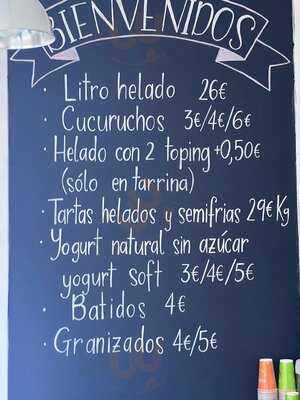 BIENVENIDOS
· Litro helado 26€
· Cucuruchos 3€/4€/6€
· Helado con 2 toping +0,50€
(sólo en tarrina)
· Tartas helados y semifrias 29€ Kg
· Yogurt natural sin azúcar
yogurt soft 3€/4€/5€
· Batidos 4€
· Granizados 4€/5€